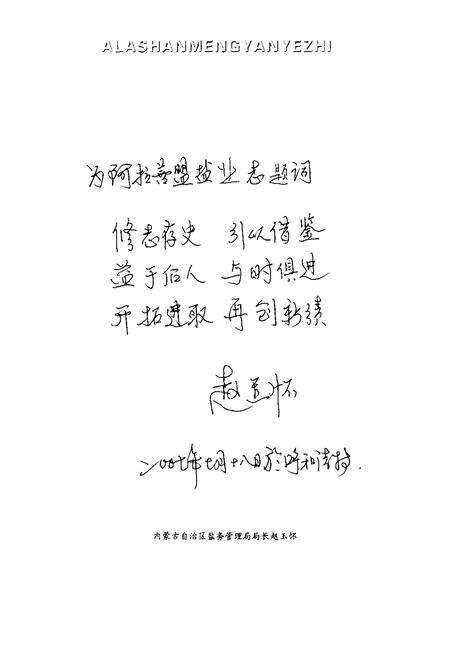 ALASHANMENGYANYEZHI
为阿拉善盟盐业志题词
修志存史 引以借鉴
益于后人 与时俱进
开拓进取 再创新绩
赵玉怀
二〇〇七年七月十八日於呼和浩特.
内蒙古自治区盐务管理局局长赵玉怀